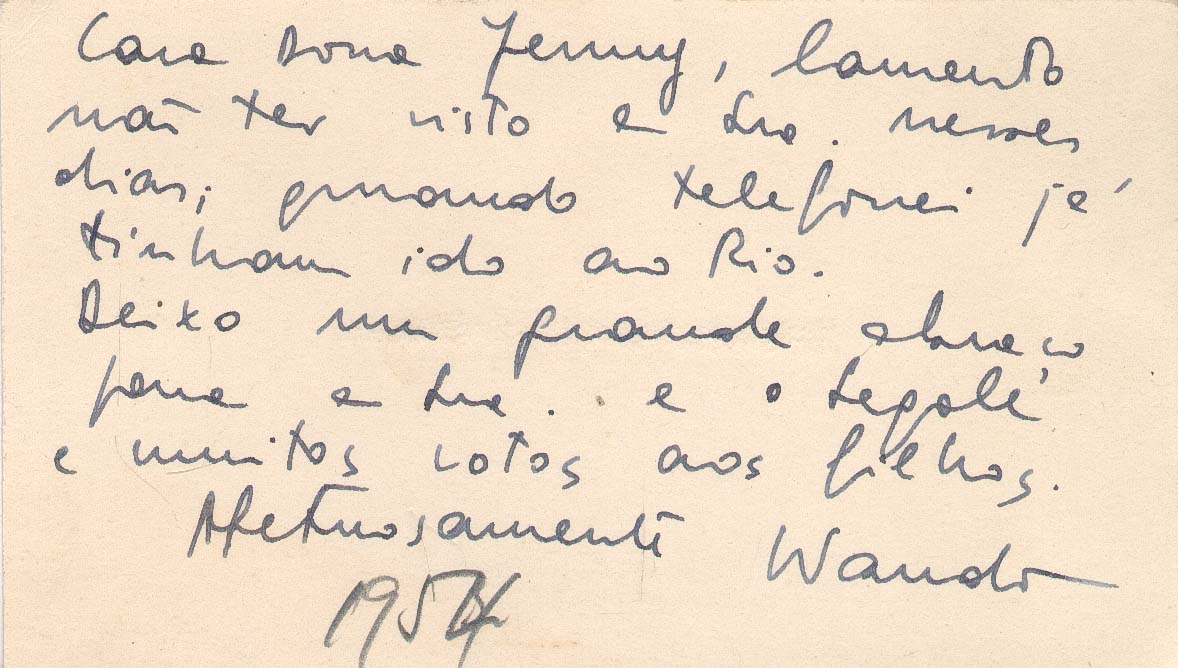 Cara Dona Jenny, lamento
não ter visto a Sra. nesses
dias; quando telefonei já
tinham ido ao Rio.
Deixo um grande abraço
para a Sra. e o Segall
e muitos votos aos filhos.
Afetuosamente Wanda
195